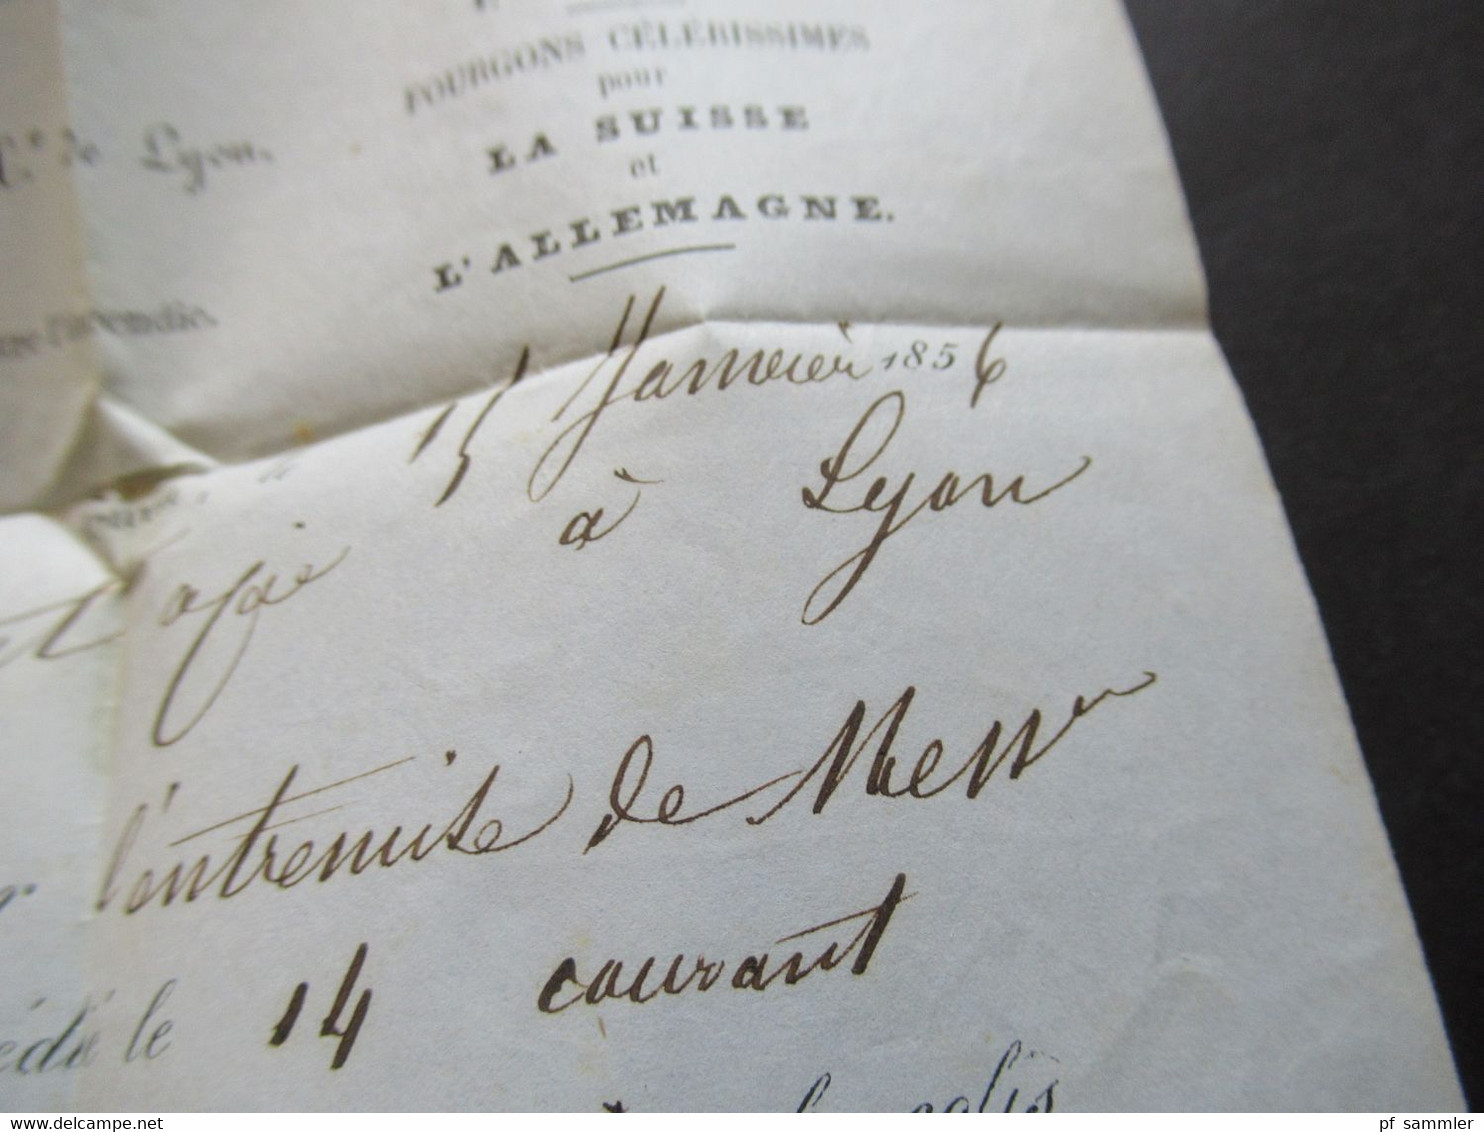 FOURGONS CÉLÉRISSIMES
pour
LA SUISSE
de Lyon.
et
L'ALLEMAGNE.
15 Janvier 1856
à Lyon
l'entremise de Mess
le 14 courant
colis
pf sammler